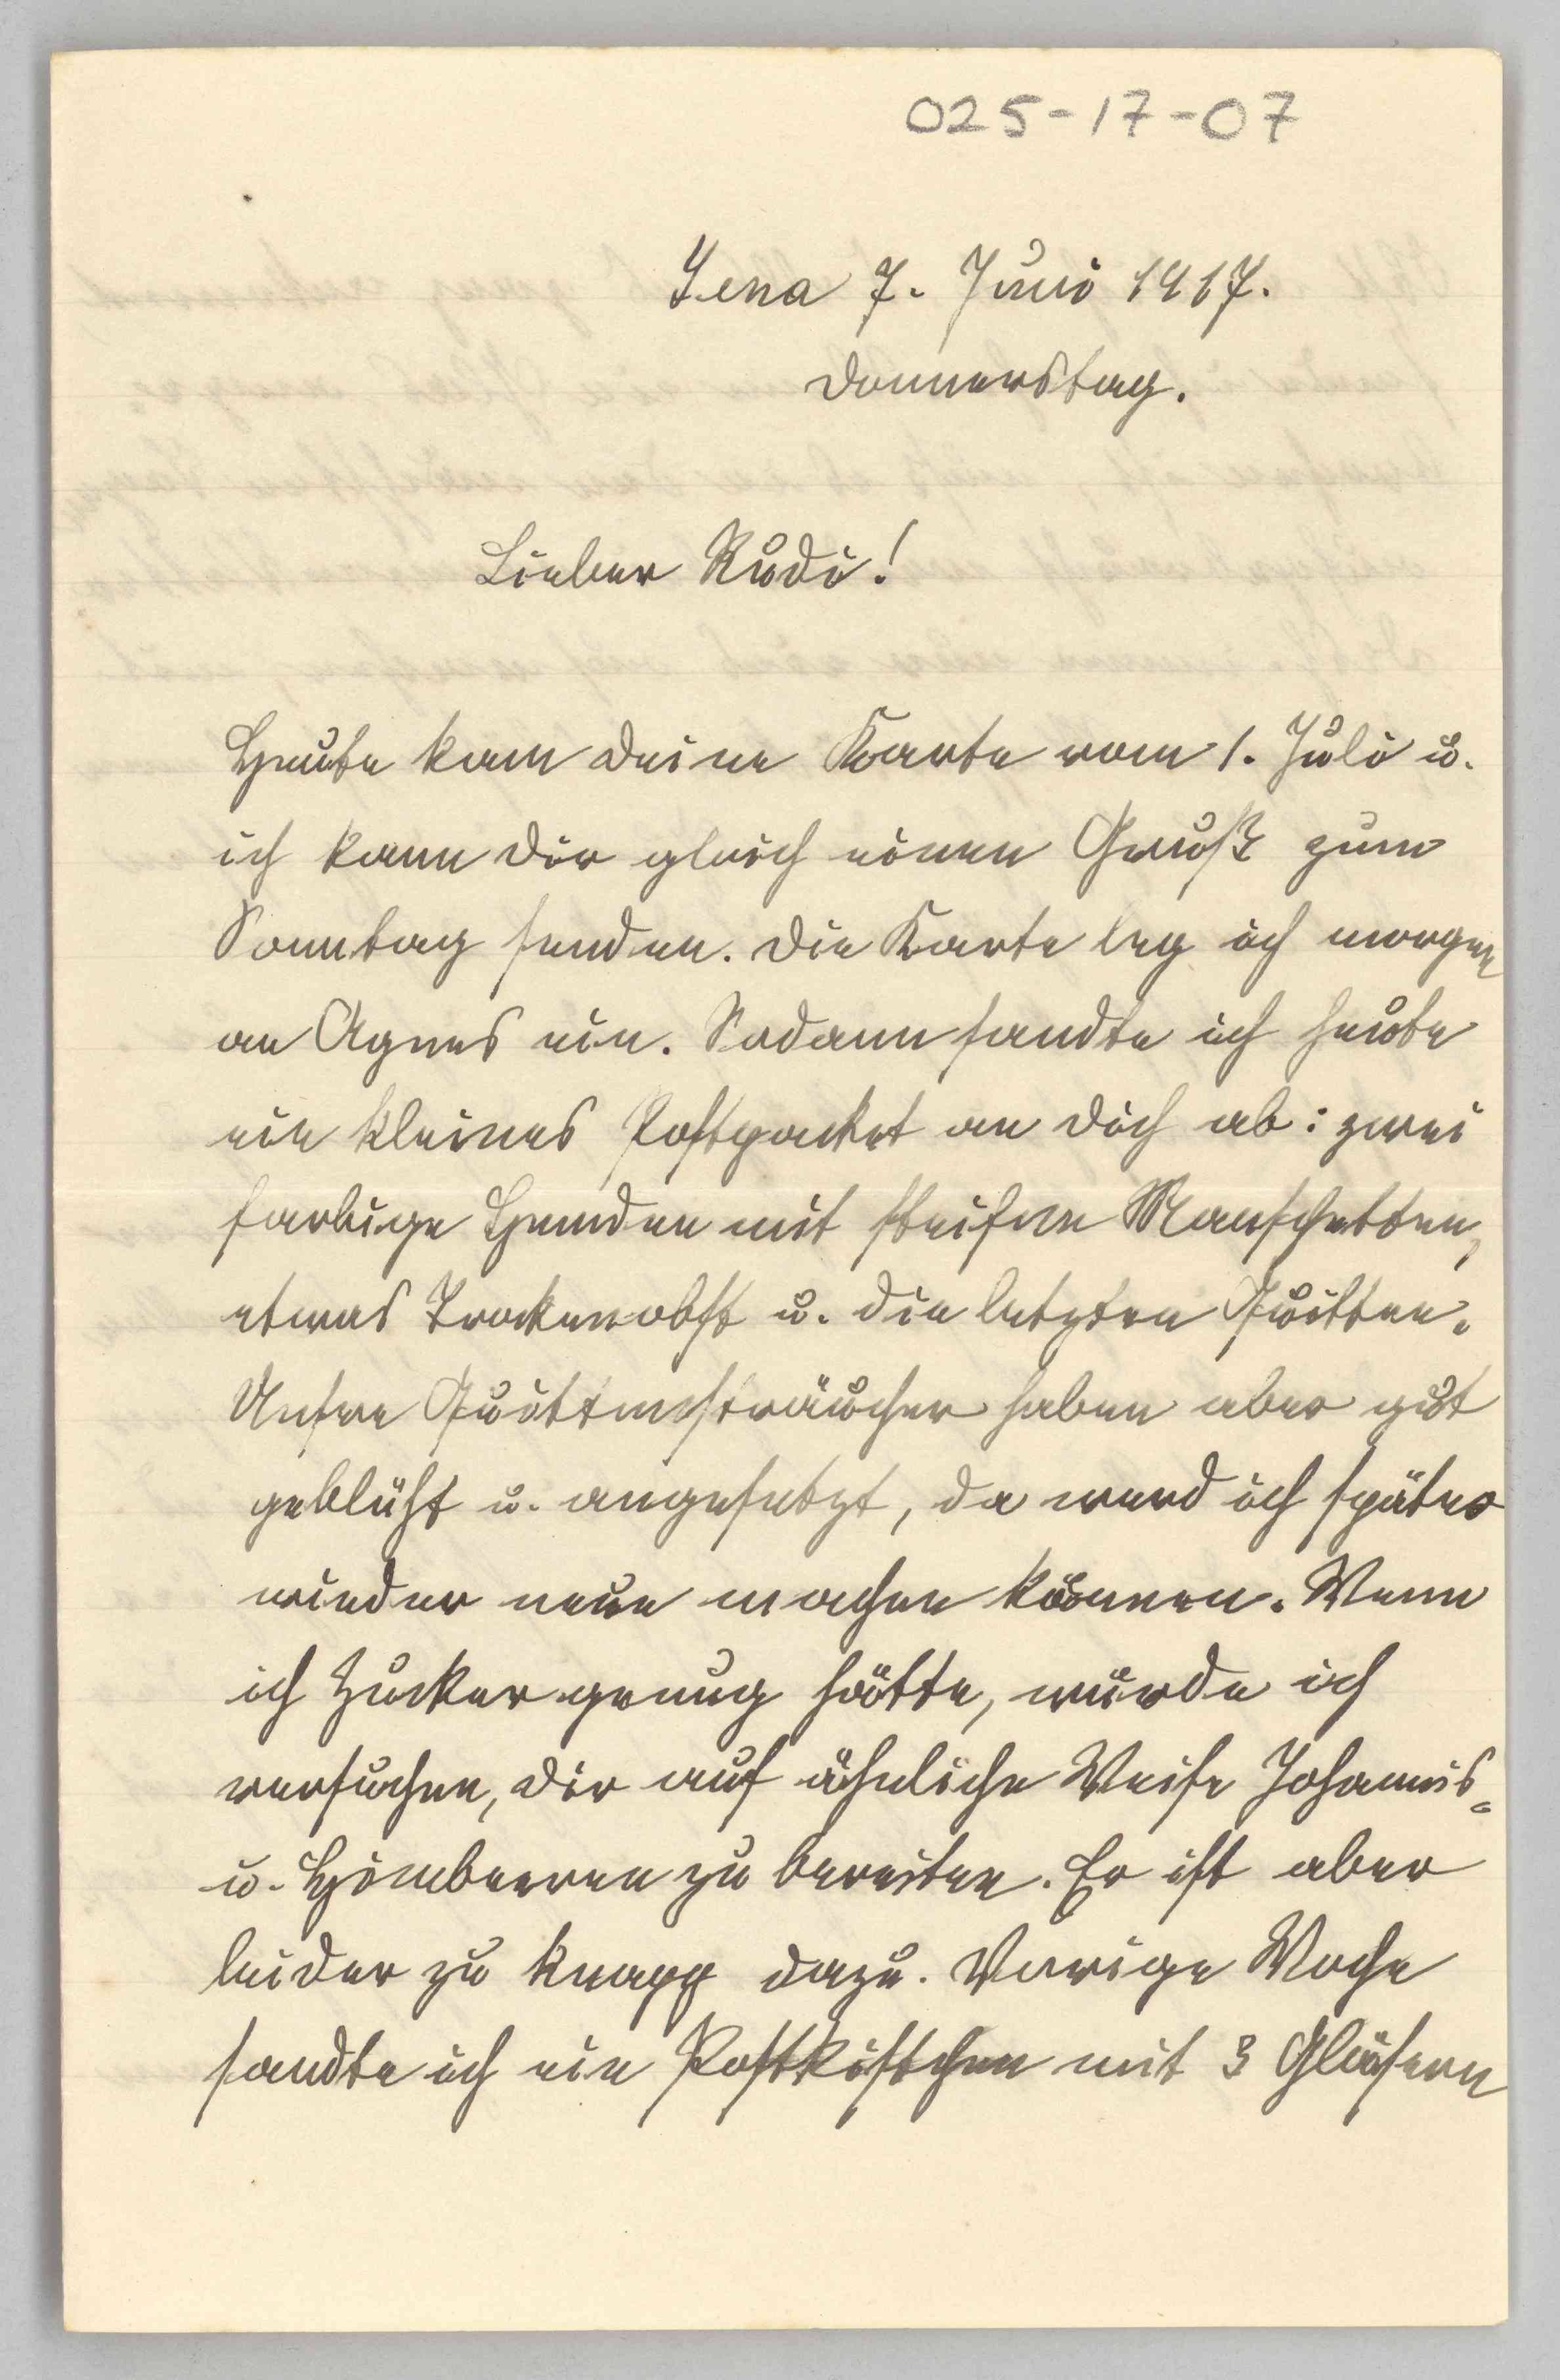 025-17-07
Jena 7. Juni 1917.
Donnerstag.
Lieber Rudi!
Heute kam deine Karte vom 1. Juli u.
ich kann dir gleich einen Gruß zum
Sonntag senden. Die Karte leg ich morgen
an Agnes ein. Sodann sandte ich heute
ein kleines Postpacket an dich ab: zwei
farbige Hemden mit steifen Manschetten,
etwas Trockenobst u. die letzten Quitten.
Unsre Quittensträucher haben aber gut
geblüht u. angesetzt, da werd ich später
wieder neue machen können. Wenn
ich Zucker genug hätte, würde ich
versuchen, dir auf ähnliche Weise Johannis-
u. Himbeeren zu bereiten. Er ist aber
leider zu knapp dazu. Vorige Woche
sandte ich ein Postkistchen mit 3 Gläsern